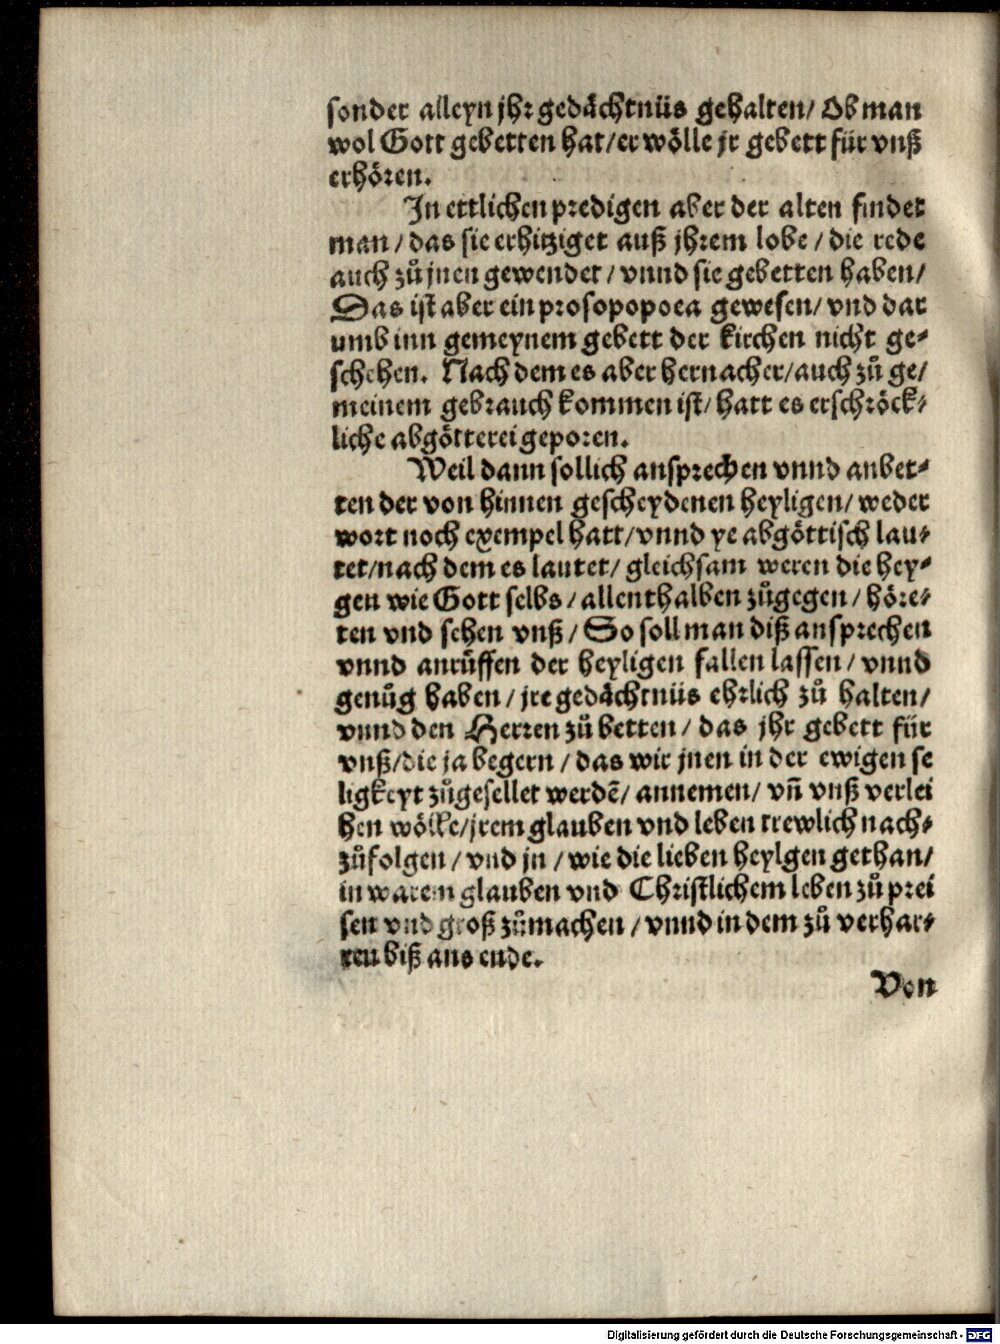 sonder alleyn jhr gedächtnüs gehalten/ Ob man
wol Gott gebetten hat/er wölle jr gebett für vnß
erhören.
In ettlichen predigen aber der alten findet
man/das sie erhitziget auß jhrem lobe/die rede
auch zů jnen gewendet/vnnd sie gebetten haben/
Das ist aber ein prosopopoea gewesen/vnd dar
umb inn gemeynem gebett der kirchen nicht ge⸗
schehen. Nach dem es aber hernacher/auch zů ge/
meinem gebrauch kommen ist/hatt es erschröck⸗
liche abgötterei geporen.
Weil dann sollich ansprechen vnnd anbet⸗
ten der von hinnen gescheydenen heyligen/weder
wort noch exempel hatt/vnnd ye abgöttisch lau⸗
tet/nach dem es lautet/gleichsam weren die hey⸗
gen wie Gott selbs/allenthalben zůgegen/höre⸗
ten vnd sehen vnß/So soll man diß ansprechen
vnnd anrůffen der heyligen fallen lassen/vnnd
genůg haben/jre gedächtnüs ehrlich zů halten/
vnnd den Herren zů betten/das jhr gebett für
vnß/die ja begern/das wir jnen in der ewigen se
ligkeyt zůgesellet werdē/annemen/vñ vnß verlei
hen wölle/jrem glauben vnd leben trewlich nach⸗
zůfolgen/vnd jn/wie die lieben heylgen gethan/
in warem glauben vnd Christlichem leben zů prei
sen vnd groß zůmachen/vnnd in dem zů verhar⸗
ren biß ans ende.
Von
Digitalisierung gefördert durch die Deutsche Forschungsgemeinschaft - DFG